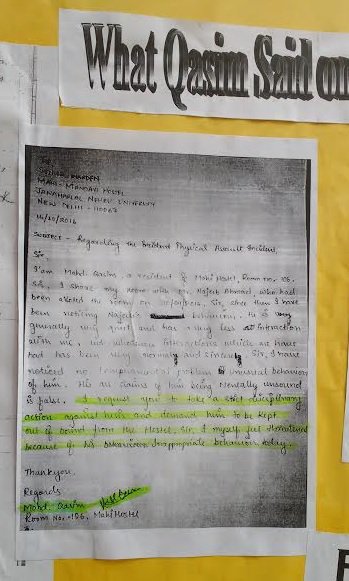 What Qasim Said on
To,
SENIOR WARDEN
MAHI-MANDAVI HOSTEL
JAWAHARLAL NEHRU UNIVERSITY
NEW DELHI - 110067
14/10/2016
SUBJECT - Regarding the Incident Physical Assault Incident.
Sir,
I'am Mohd. Qasim, a resident of Mahi Hostel, Room no. 106.
Sir, I share my room with Mr. Najeeb Ahmad, who had
been alloted the room on Sir, since then I have
been noticing Najeeb's behaviour. He is very
generally very quiet and has very less at interaction
with me, but whatever interactions which we have
had has been very normal and sincere. Sir, I have
noticed no temperamental problem or unusual behaviour
of him. His claims of him being mentally unsound
is false. I request you to take a strict disciplinary
action against him and demand him to be kept
out of bound from the Hostel. Sir, I myself feel threatened
because of his behaviour inappropriate behaviour today.
Thank you,
Regards
Mohd. Qasim
Room No. - 106, Mahi Hostel